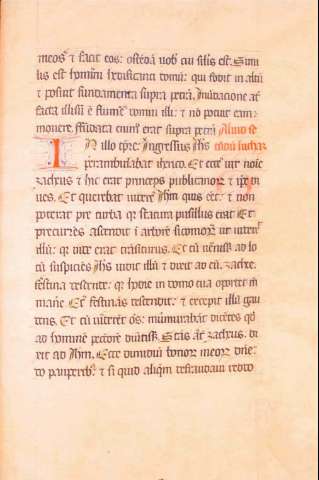 meos et facit eos: ostendā vob cui silis est. Simi
lis est homini hedificanti domū: qui fodit in altū
et posuit fundamenta supra petrā. Inūdacione aū
facta illisū ē flumē domui illi: et nō potuit eam
movere. fūdata enim erat supra petrā Aliud se
In illo tpre. Ingressus Ihs cūdū lucham
perambulabat iherico. Et ecce vir noīe
zacheus et hic erat princeps publicanoꝝ et ipe di
ves. Et querebat videre Ihm quis eēt: et non
poterat pre turba qꝛ statura pusillus erat Et
precurrēs ascendit ī arborē sicomoꝝ ut videret
illū: qꝛ inde erat trāsiturus. Et cū venisset ad lo
cū suspiciēs Ihs vidit illū et dixit ad eū. zachee.
festina descende: qꝛ hodie in domo tua oportet me
mane Et festinās descendit: et excepit illū gau
dens. Et cū viderēt oēs: murmurabāt dicētes qd
ad hominē peccatorē divtisset. Stās aūt zacheus. di
xit ad Ihm. Ecce dimidiū bonoꝝ meoꝝ dne
do pauperibꝫ et si quid aliquē defraudavi reddo